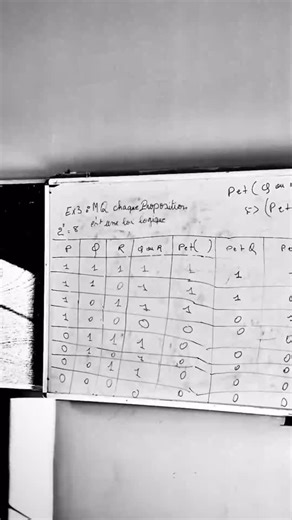 P et ( Q ou
Ex3 : MQ chaque Proposition
<=> (P et
est une loi logique
2³ = 8
P Q R Q ou R P et ( ) P et Q P e
1 1 1 1 1 1
1 1 0 1 1 1
1 0 1 1 1 0
1 0 0 0 0 0
0 1 1 1 0 0
0 1 0 1 0 0
0 0 1 1 0 0
0 0 0 0 0 0